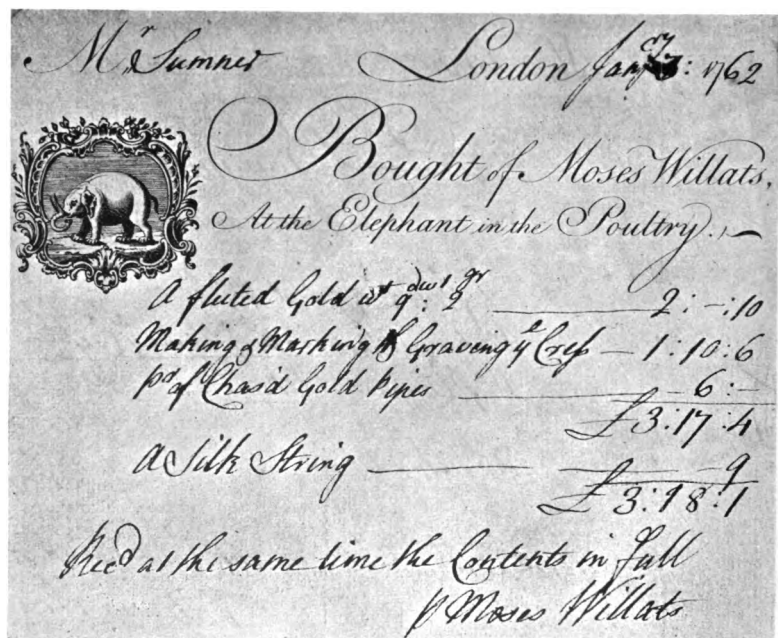 Mr Sumner
London Janry 3: 1762
Bought of Moses Willats,
At the Elephant in the Poultry.
A fluted Gold wt 9dwt: 2gr 2: -: 10
Making & Marking & Graving ye Cress 1: 10: 6
pr of Chas'd Gold Pipes - 6: -
£ 3: 17: 4
A Silk String - - 9
£ 3: 18: 1
Recd at the same time the Contents in full
p Moses Willats